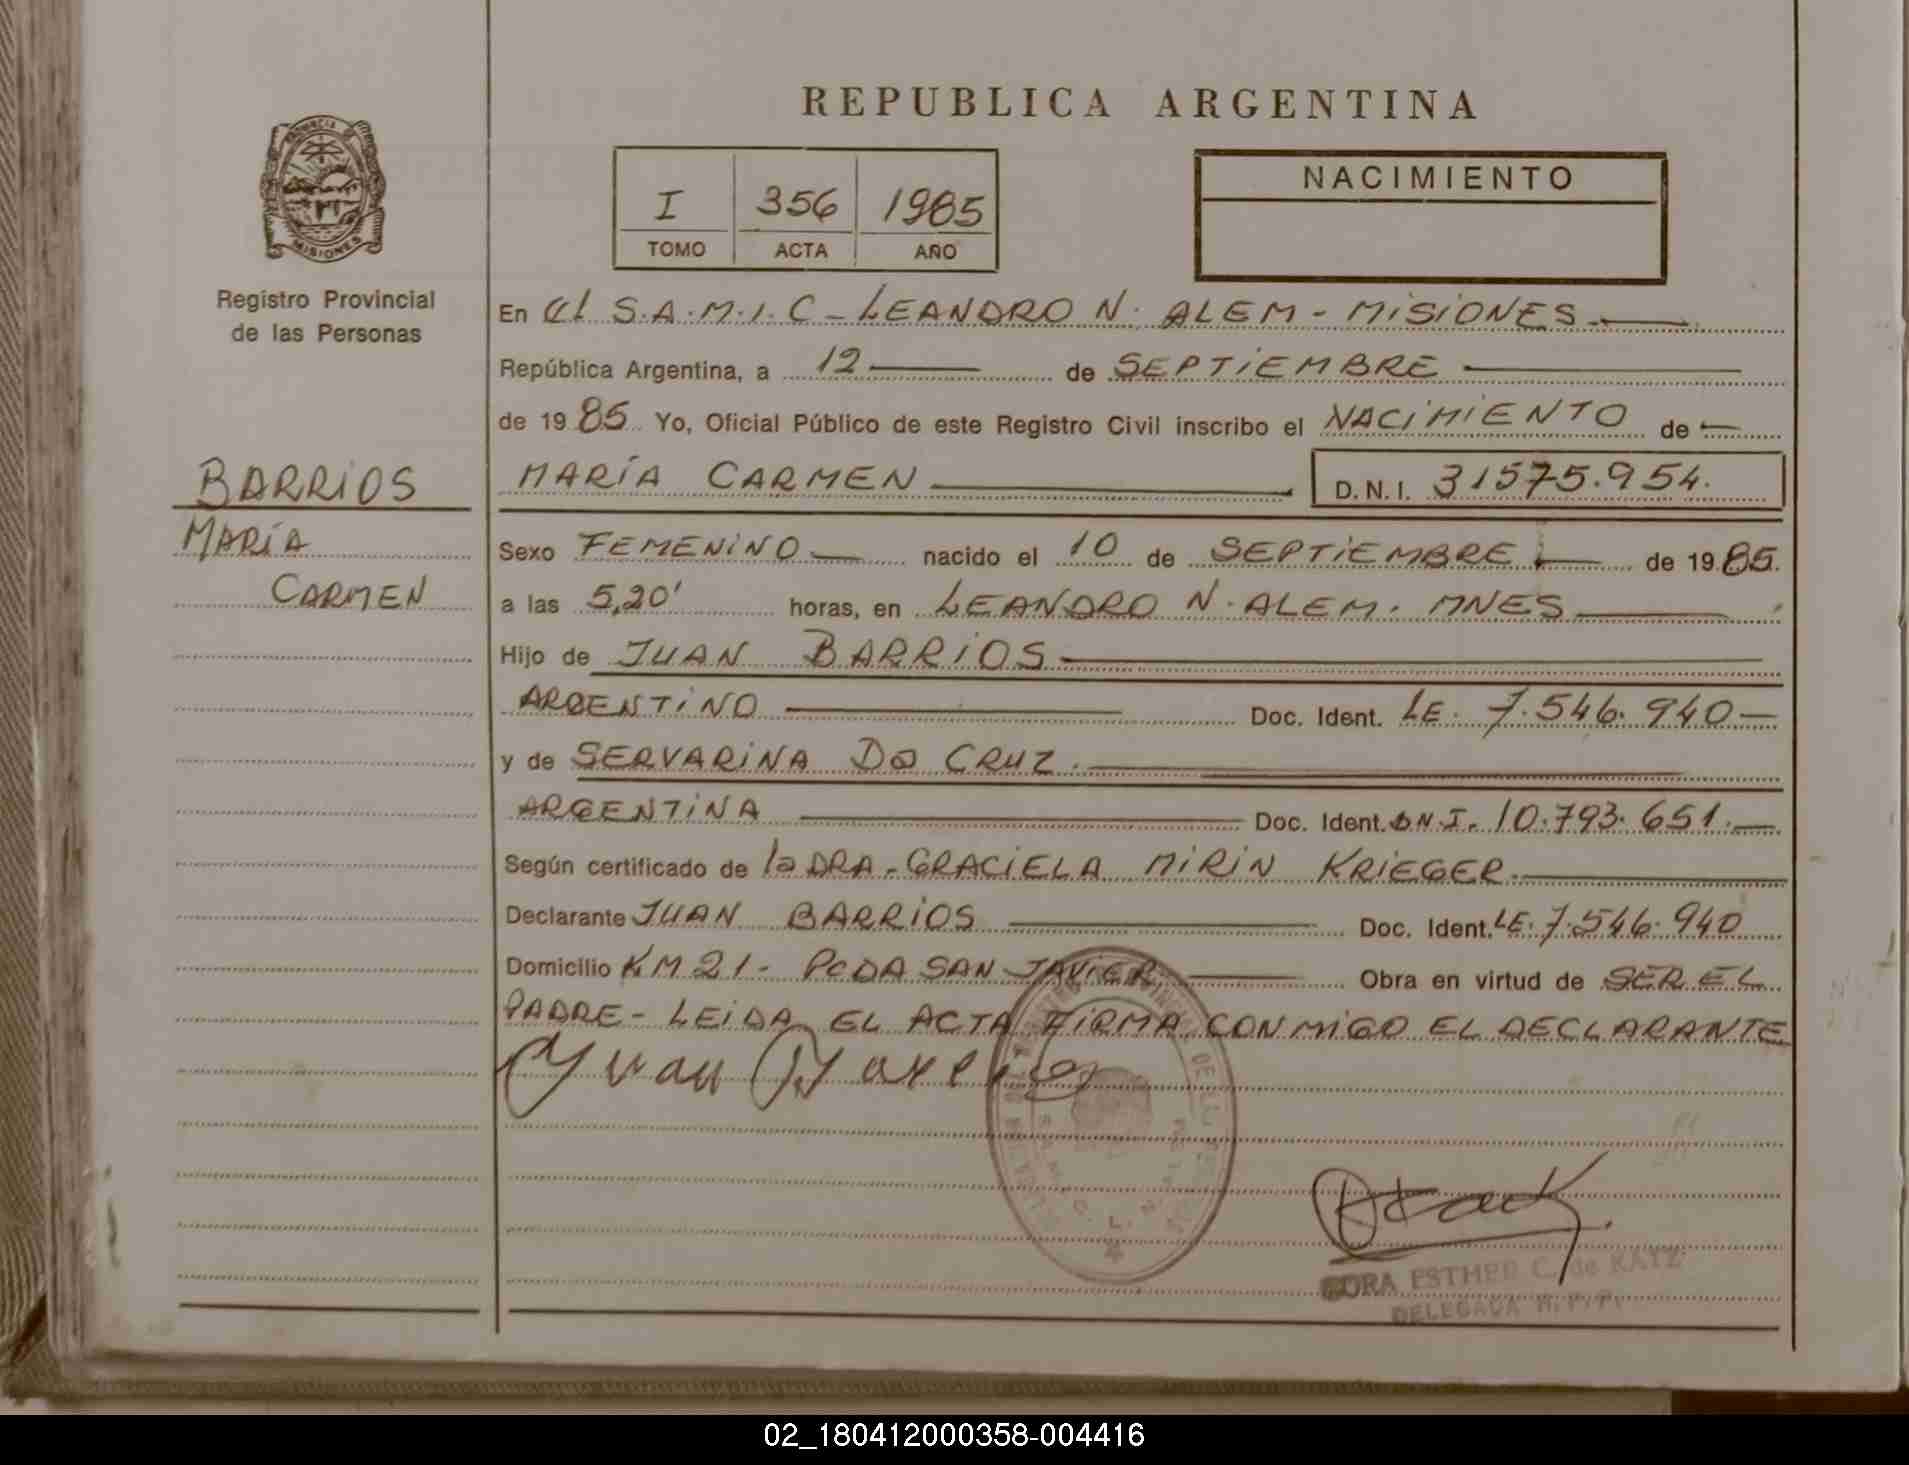 REPUBLICA ARGENTINA
PROVINCIA
MISIONES
Registro Provincial
de las Personas
I 356 1985
TOMO ACTA AÑO
NACIMIENTO
En el S.A.M.I.C - LEANDRO N. ALEM - MISIONES
República Argentina, a 12 de SEPTIEMBRE
de 1985 Yo, Oficial Público de este Registro Civil inscribo el NACIMIENTO de
BARRIOS
MARÍA CARMEN D.N.I. 31575.954.
MARÍA
CARMEN
Sexo FEMENINO nacido el 10 de SEPTIEMBRE de 1985.
a las 5,20' horas, en LEANDRO N. ALEM. MNES
Hijo de JUAN BARRIOS
ARGENTINO Doc. Ident. LE. 7.546.940
y de SERVARINA Da CRUZ.
ARGENTINA Doc. Ident. D.N.I. 10.793.651.
Según certificado de la DRA - GRACIELA MIRIN KRIEGER.
Declarante JUAN BARRIOS Doc. Ident. LE. 7.546.940
Domicilio KM 21 - PCDA SAN JAVIER. Obra en virtud de SER EL
PADRE - LEIDA EL ACTA FIRMA CON MIGO EL DECLARANTE
ESTHER C. de KATZ
DELEGADA R. P. P.
02_180412000358-004416